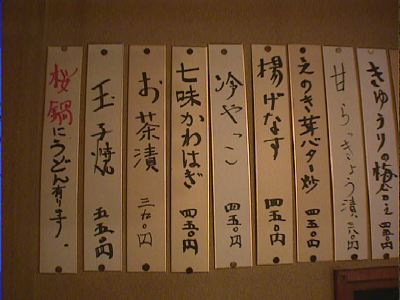 きゅうりの梅
甘らっきょう漬
えのき茸バター炒 四五〇円
揚げなす 四五〇円
冷やっこ 四五〇円
七味かわはぎ 四五〇円
お茶漬 三九〇円
玉子焼 五五〇円
桜鍋にうどん有ります。